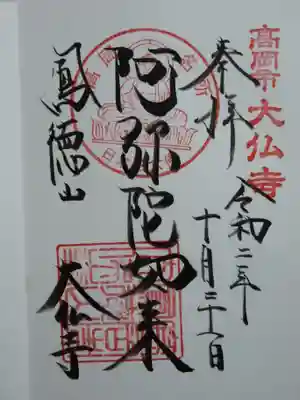 髙岡市大仏寺
奉拝
令和二年
十月三十一日
阿弥陀如来
鳳徳山
大仏寺